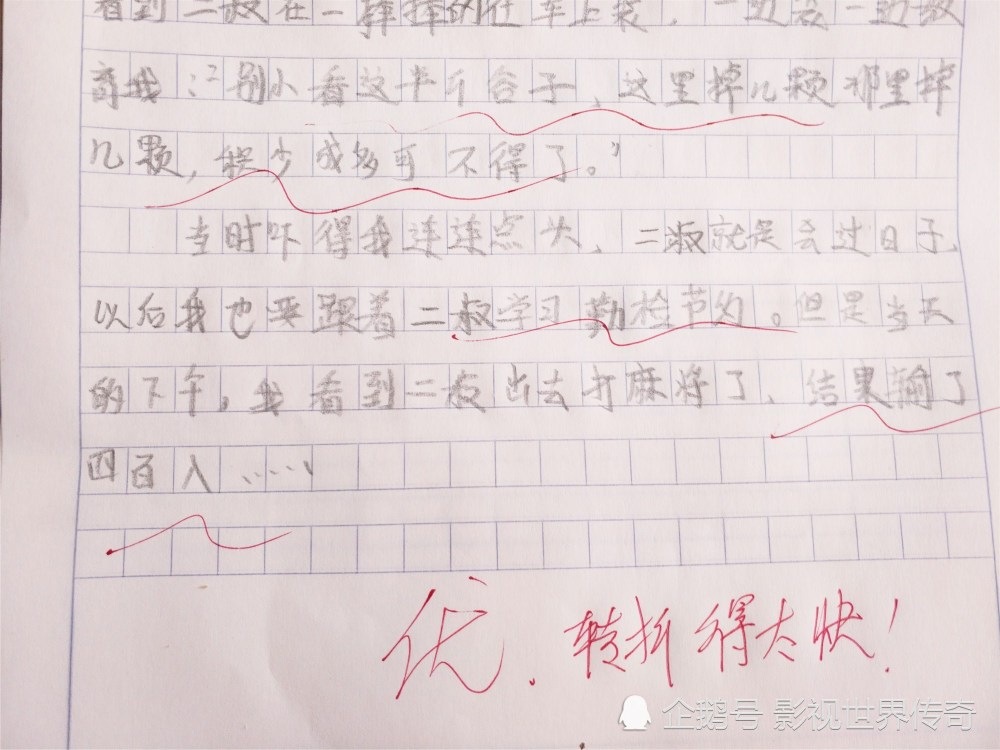 看到二叔在一捧捧的往车上装，一边装一边教
育我："别小看这半斤谷子，这里掉几颗那里掉
几颗，积少成多可不得了。"
当时吓得我连连点头，二叔就是会过日子，
以后我也要跟着二叔学习勤检节约。但是当天
的下午，我看到二叔出去打麻将了，结果输了
四百八……
优.转折得太快！
企鹅号 影视世界传奇